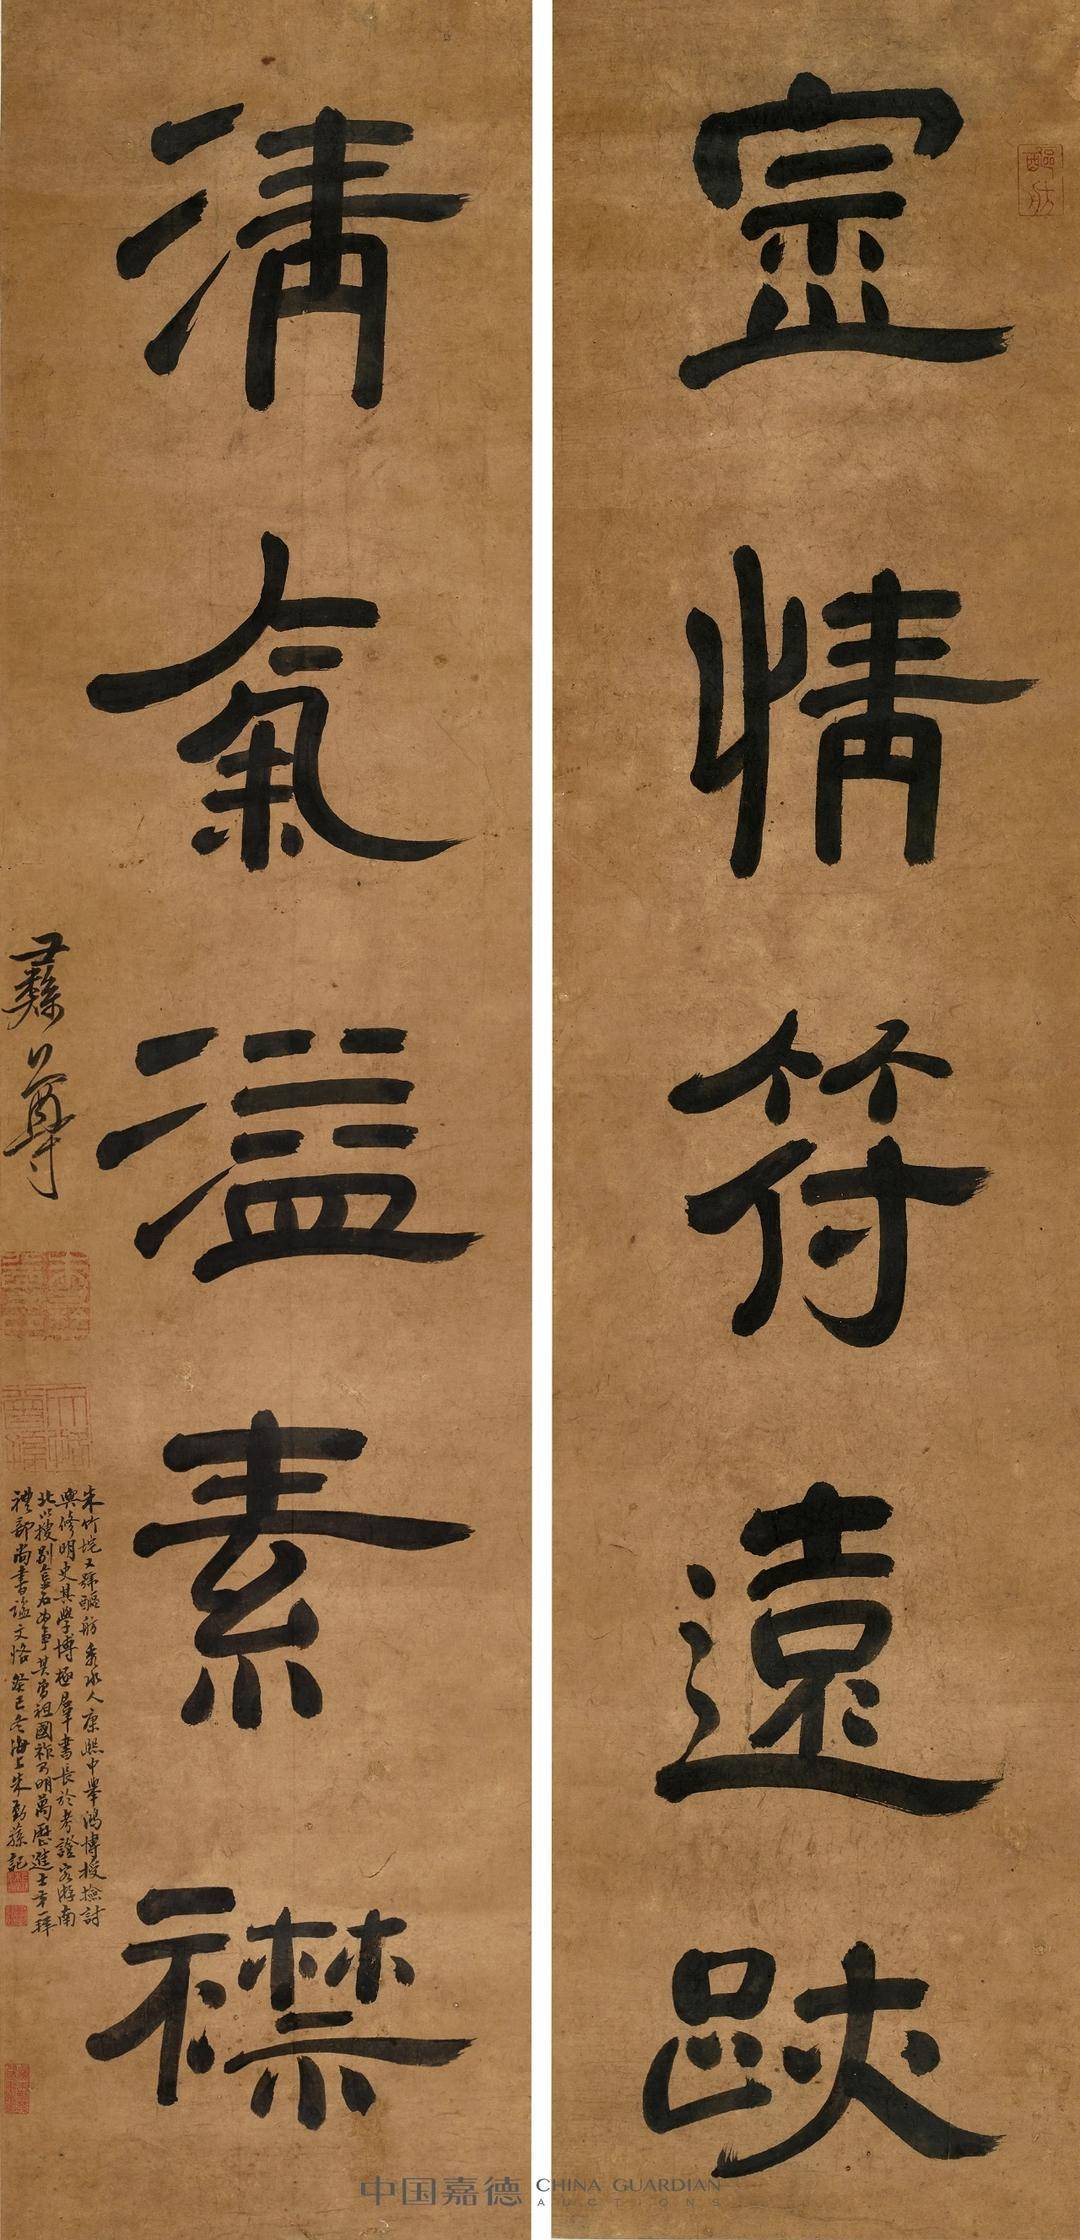 醧舫
情符遠跡
清氣溢素襟
彝尊
朱竹垞又號醧舫秀水人康熙中舉鴻博授檢討
與修明史其學博極羣書長於考證客游南
北以搜剔金石為事其曾祖國祚乃明萬曆進士第一拜
禮部尚書謚文恪癸巳冬海上朱蓀記
中国嘉德 CHINA GUARDIAN
AUCTIONS